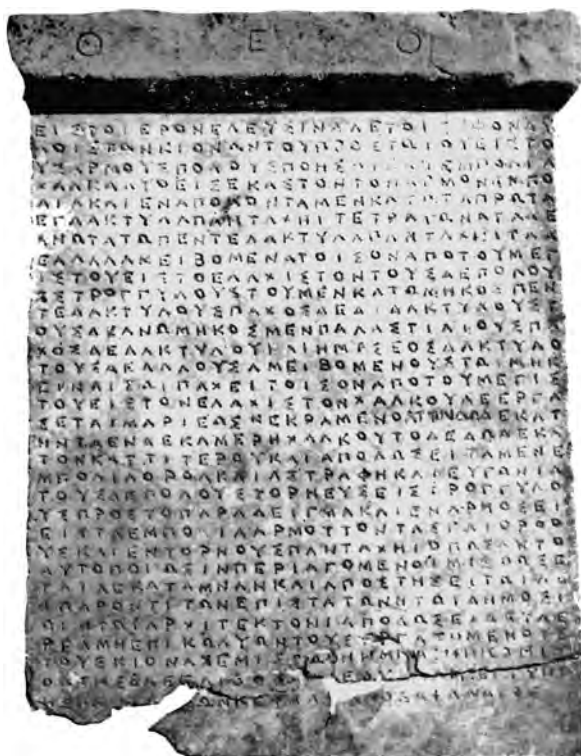 Θ Ε Ο
ΕΙΣΤΟΙΕΡΟΝΕΛΕΥΣΙΝΑΔΕΤΟΙ
ΛΟΙΣΤΩΝΚΙΟΝΩΝΤΟΥΠΡΟΣΤΩΙΟΥΕΙΣΤΟ
ΥΣΑΡΜΟΥΣΠΟΛΟΥΣΠΟΗΣΑΙ ΕΜΠΟΛΙΑ
ΧΑΛΚΑΔΥΟΕΙΣΕΚΑΣΤΟΝΤΟΝΑΡΜΟΝΕΜΠΟ
ΛΙΑΚΑΙΕΝΑΠΟΛΟΝΤΑΜΕΝΚΑΤΩΤΑΠΡΩΤΑ
ΕΓΔΑΚΤΥΛΑΠΑΝΤΑΧΗΙΤΕΤΡΑΓΩΝΑΤΑΔΕ
ΑΝΩΤΑΤΩΠΕΝΤΕΔΑΚΤΥΛΑΠΑΝΤΑΧΗΙΤΑΔ
ΕΑΛΛΑΑΜΕΙΒΟΜΕΝΑΤΟΙΣΟΝΑΠΟΤΟΥΜΕΓ
ΙΣΤΟΥΕΙΣΤΟΕΛΑΧΙΣΤΟΝΤΟΥΣΔΕΠΟΛΟΥ
ΣΣΤΡΟΓΓΥΛΟΥΣΤΟΥΜΕΝΚΑΤΩΜΗΚΟΣΠΕΝ
ΤΕΔΑΚΤΥΛΟΥΣΠΑΧΟΣΔΕΔΥΔΑΚΤΥΛΟΥΣΤ
ΟΥΣΔΑΝΩΜΗΚΟΣΜΕΝΠΑΛΑΣΤΙΑΙΟΥΣΠΑ
ΧΟΣΔΕΔΑΚΤΥΛΟΥΚΑΙΗΜΙΣΕΟΣΔΑΚΤΥΛΟ
ΤΟΥΣΔΕΑΛΛΟΥΣΑΜΕΙΒΟΜΕΝΟΥΣΤΩΙΜΗΚ
ΕΙΚΑΙΤΩΙΠΑΧΕΙΤΟΙΣΟΝΑΠΟΤΟΥΜΕΓΙΣ
ΤΟΥΕΙΣΤΟΝΕΛΑΧΙΣΤΟΝΧΑΛΚΟΥΔΕΕΡΓΑ
ΣΕΤΑΙΜΑΡΙΕΩΣΚΕΚΡΑΜΕΝΟΥΤΗΝΔΩΔΕΚΑΤ
ΗΝΤΑΕΝΔΕΚΑΜΕΡΗΧΑΛΚΟΥΤΟΔΕΔΩΔΕΚΑ
ΤΟΝΚΑΤΤΙΤΕΡΟΥΚΑΙΑΠΟΔΩΣΕΙΤΑΜΕΝΕ
ΜΠΟΛΙΑΟΡΘΑΚΑΙΑΣΤΡΑΦΗΚΑΙΕΥΓΩΝΙΑ
ΤΟΥΣΔΕΠΟΛΟΥΣΤΟΡΝΕΥΣΕΙΣΤΡΟΓΓΥΛΟ
ΥΣΠΡΟΣΤΟΠΑΡΑΔΕΙΓΜΑΚΑΙΕΝΑΡΜΟΣΕΙ
ΕΙΣΤΑΕΜΠΟΛΙΑΑΡΜΟΤΤΟΝΤΑΣΚΑΙΟΡΘΟ
ΥΣΚΑΙΕΝΤΟΡΝΟΥΣΠΑΝΤΑΧΗΙΟΠΩΣΑΝΤΟ
ΑΥΤΟΠΟΙΩΣΙΝΠΕΡΙΑΓΟΜΕΝΟΙΜΙΣΘΩΣΕ
ΤΑΙΔΕΚΑΤΑΜΝΑΝΚΑΙΑΠΟΣΤΗΣΕΙΤΩΙΑΕ
ΙΠΑΡΟΝΤΙΤΩΝΕΠΙΣΤΑΤΩΝΗΤΩΙΔΗΜΟΣΙ
ΩΙΗΤΩΙΑΡΧΙΤΕΚΤΟΝΙΑΠΟΔΩΣΕΙΔΕΤΑΕ
ΡΓΑΜΗΕΠΙΚΩΛΥΩΝΤΟΥΣΕΡΓΑΖΟΜΕΝΟΥΣ
ΤΟΥΣΚΙΟΝΑΣΕΜΙΣΘΩΘΗ